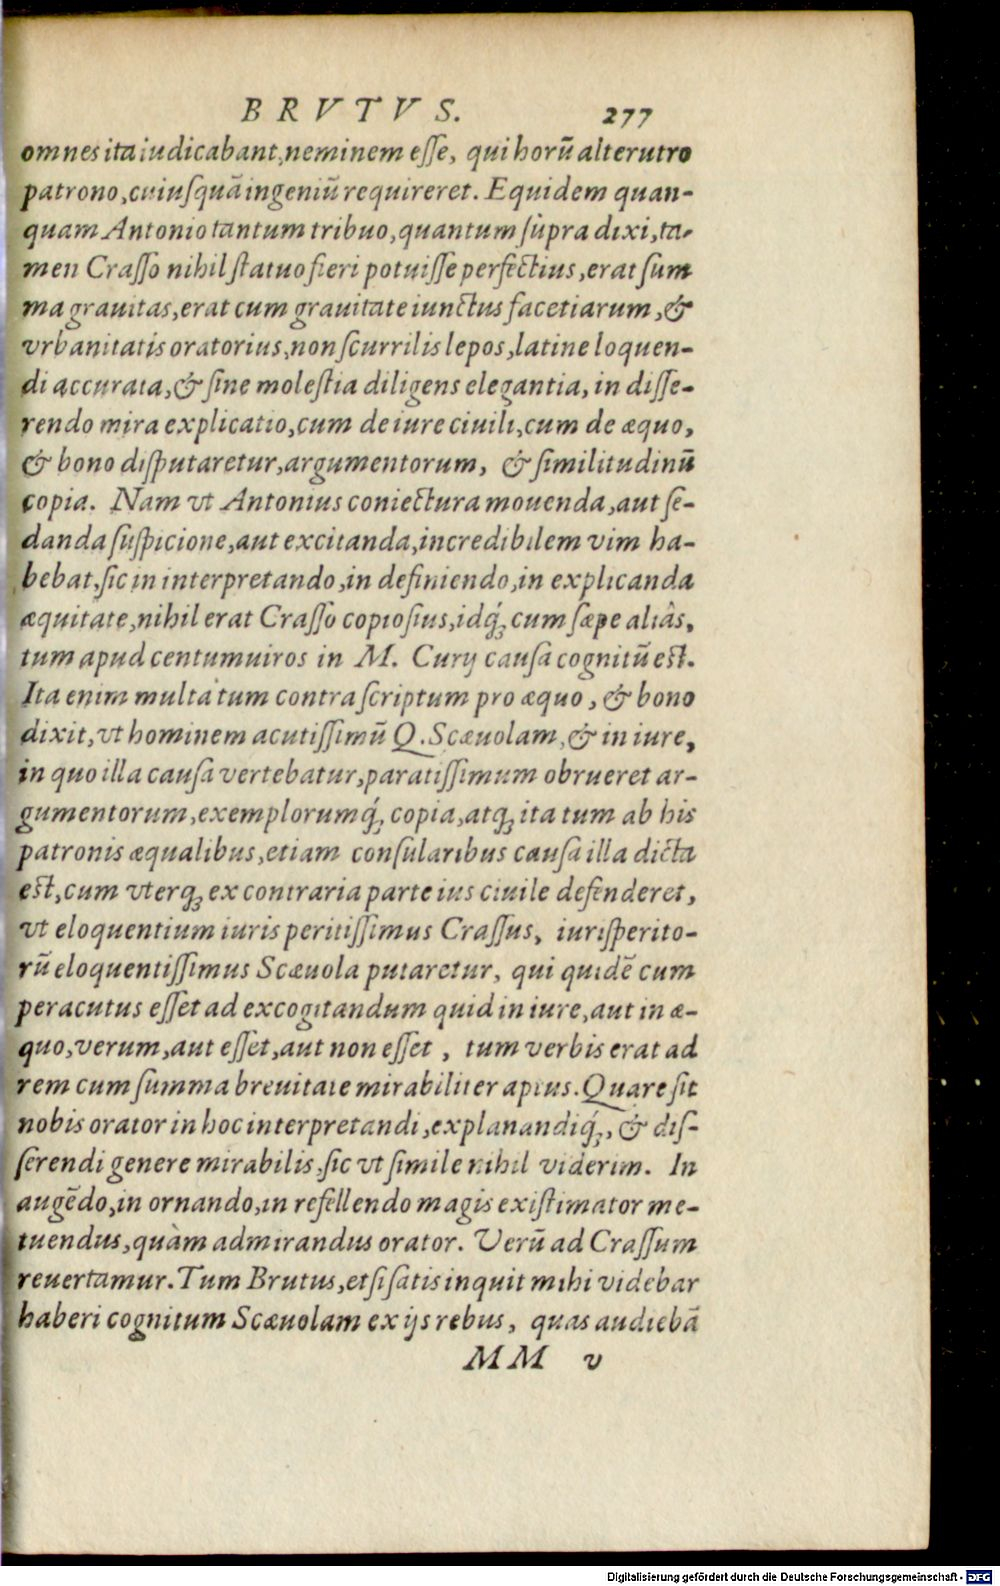 BRVTVS. 277
omnes ita iudicabant, neminem eſſe, qui horũ alterutro
patrono, cuiuſquã ingeniũ requireret. Equidem quan-
quam Antonio tantum tribuo, quantum ſùpra dixi, ta-
men Craſſo nihil ſtatuo fieri potuiſſe perfectius, erat ſum
ma grauitas, erat cum grauitate iunctus facetiarum, &
vrbanitatis oratorius, non ſcurrilis lepos, latine loquen-
di accurata, & ſine moleſtia diligens elegantia, in diſſe-
rendo mira explicatio, cum de iure ciuili, cum de æquo,
& bono diſputaretur, argumentorum, & ſimilitudinũ
copia. Nam vt Antonius coniectura mouenda, aut ſe-
danda ſuſpicione, aut excitanda, incredibilem vim ha-
bebat, ſic in interpretando, in definiendo, in explicanda
æquitate, nihil erat Craſſo copioſius, idq́; cum ſæpe aliâs,
tum apud centumuiros in M. Curij cauſa cognitũ eſt.
Ita enim multa tum contra ſcriptum pro æquo, & bono
dixit, vt hominem acutiſſimũ Q. Scæuolam, & in iure,
in quo illa cauſa vertebatur, paratiſſimum obrueret ar-
gumentorum, exemplorumq́; copia, atq; ita tum ab his
patronis æqualibus, etiam conſularibus cauſa illa dicta
eſt, cum vterq; ex contraria parte ius ciuile defenderet,
vt eloquentium iuris peritiſſimus Craſſus, iuriſperito-
rũ eloquentiſſimus Scæuola putaretur, qui quidẽ cum
peracutus eſſet ad excogitandum quid in iure, aut in æ-
quo, verum, aut eſſet, aut non eſſet, tum verbis erat ad
rem cum ſumma breuitate mirabiliter aptus. Quare ſit
nobis orator in hoc interpretandi, explanandiq́;, & diſ-
ſerendi genere mirabilis, ſic vt ſimile nihil viderim. In
augẽdo, in ornando, in refellendo magis exiſtimator me-
tuendus, quàm admirandus orator. Verũ ad Craſſum
reuertamur. Tum Brutus, etſi ſatis inquit mihi videbar
haberi cognitum Scæuolam ex ijs rebus, quas audiebã
MM v
Digitalisierung gefördert durch die Deutsche Forschungsgemeinschaft - DFG